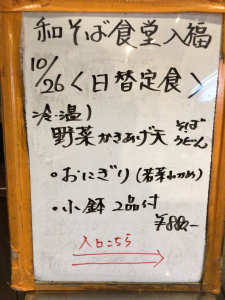 和そば食堂入福
10/26〈日替定食〉
冷・温)
野菜かきあげ天 そば うどん
・おにぎり(若菜わかめ)
・小鉢2品付
¥880-
入口こちら